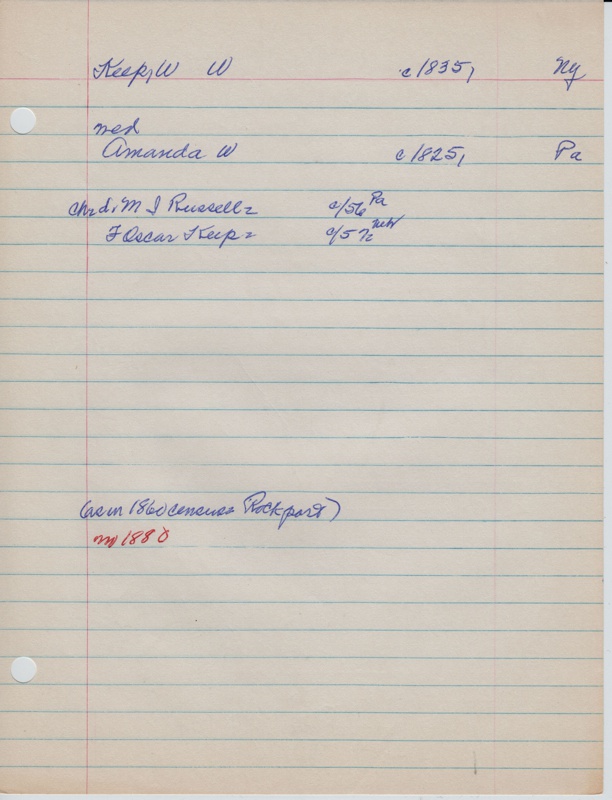 Keep, W W c 1835, Ny
med
Amanda W c 1825, Pa
chrd. M I Russell = c/56 Pa
F Oscar Keep = c/57 = Nebr
(as in 1860 census Rockport)
1880